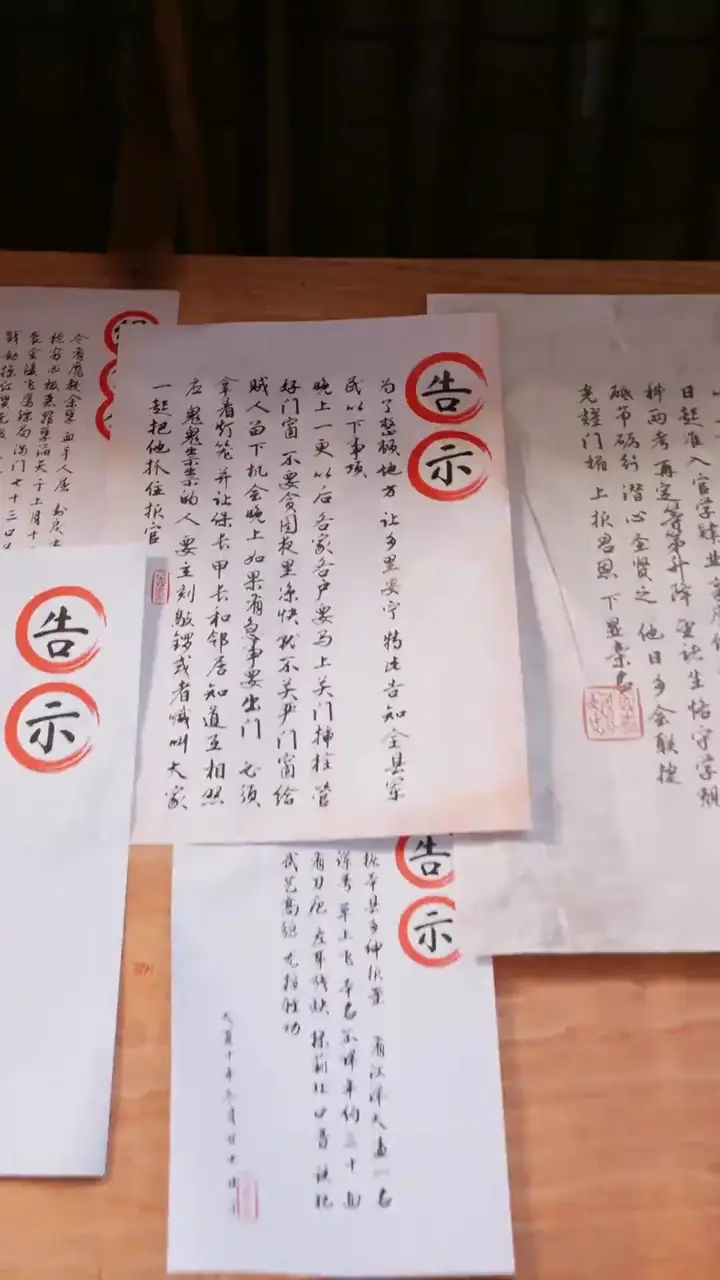 告示
为了整顿地方 让乡里安宁 特此告知全县军
民以下事项
晚上一更以后各家各户要马上关门插栓管
好门窗 不要贪图夜里凉快就不关严门窗给
贼人留下机会晚上如果有急事要出门 必须
拿着灯笼并让保长甲长和邻居知道互相照
应 鬼鬼祟祟的人 要立刻敲锣或者喊叫大家
一起把他抓住报官
日起准入官学肄业
科两考 再定等第升降 望诸生恪守学规
砥节砺行 潜心圣贤之 他日乡会联捷
光耀门楣 上报君恩 下显亲名
告示
告示
据本县乡绅报案 有江洋大盗一名
诨号草上飞 本名不详年约三十 面
有刀疤 左耳残缺 操 口音
武艺高强 尤擅轻功
今有魔教余孽 血手人屠
抢 罪孽滔天于上月十
在金陵飞鹰镖局满门七十三口